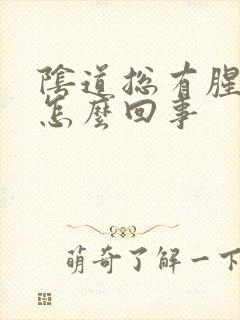 陰道総有腥
怎麼回事
萌奇了解一下